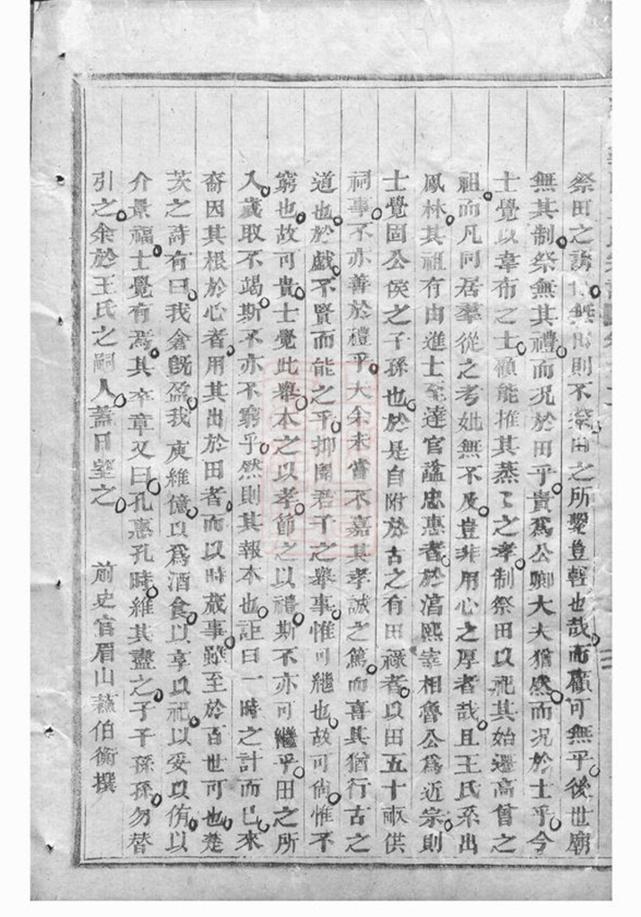 祭田之諸無田則不祭田之所繫豈輕也哉而顧可無乎後世廟
無其制祭無其禮而況於田乎貴爲公卿大夫猶然而況於士乎今
士覺以韋布之士顧能推其蒸蒸之孝制祭田以祀其始遷高曾之
祖而凡同居羣從之考妣無不及豈非用心之厚者哉且王氏系出
鳳林其祖有由進士至達官諡忠惠者於淳熙宰相魯公爲近宗則
士覺固公侯之子孫也於是自附於古之有田祿者以田五十畝供
祠事不亦善於禮乎大余未嘗不嘉其孝誠之篤而喜其猶行古之
道也於戲不賢而能之乎抑聞君子之舉事惟可繼也故可尚惟不
窮也故可貴士覺此舉本之以孝節之以禮斯不亦可繼乎田之所
入歲取不竭斯不亦不窮乎然則其報本也詎曰一時之計而已來
裔因其根於心者用其出於田者而以時蕆事雖至於百世可也楚
茨之詩有曰我倉旣盈我庾維億以爲酒食以享以祀以妥以侑以
介景福士覺有焉其卒章又曰孔惠孔時維其盡之子子孫孫勿替
引之余於王氏之嗣人蓋日望之 前史官眉山蘇伯衡撰